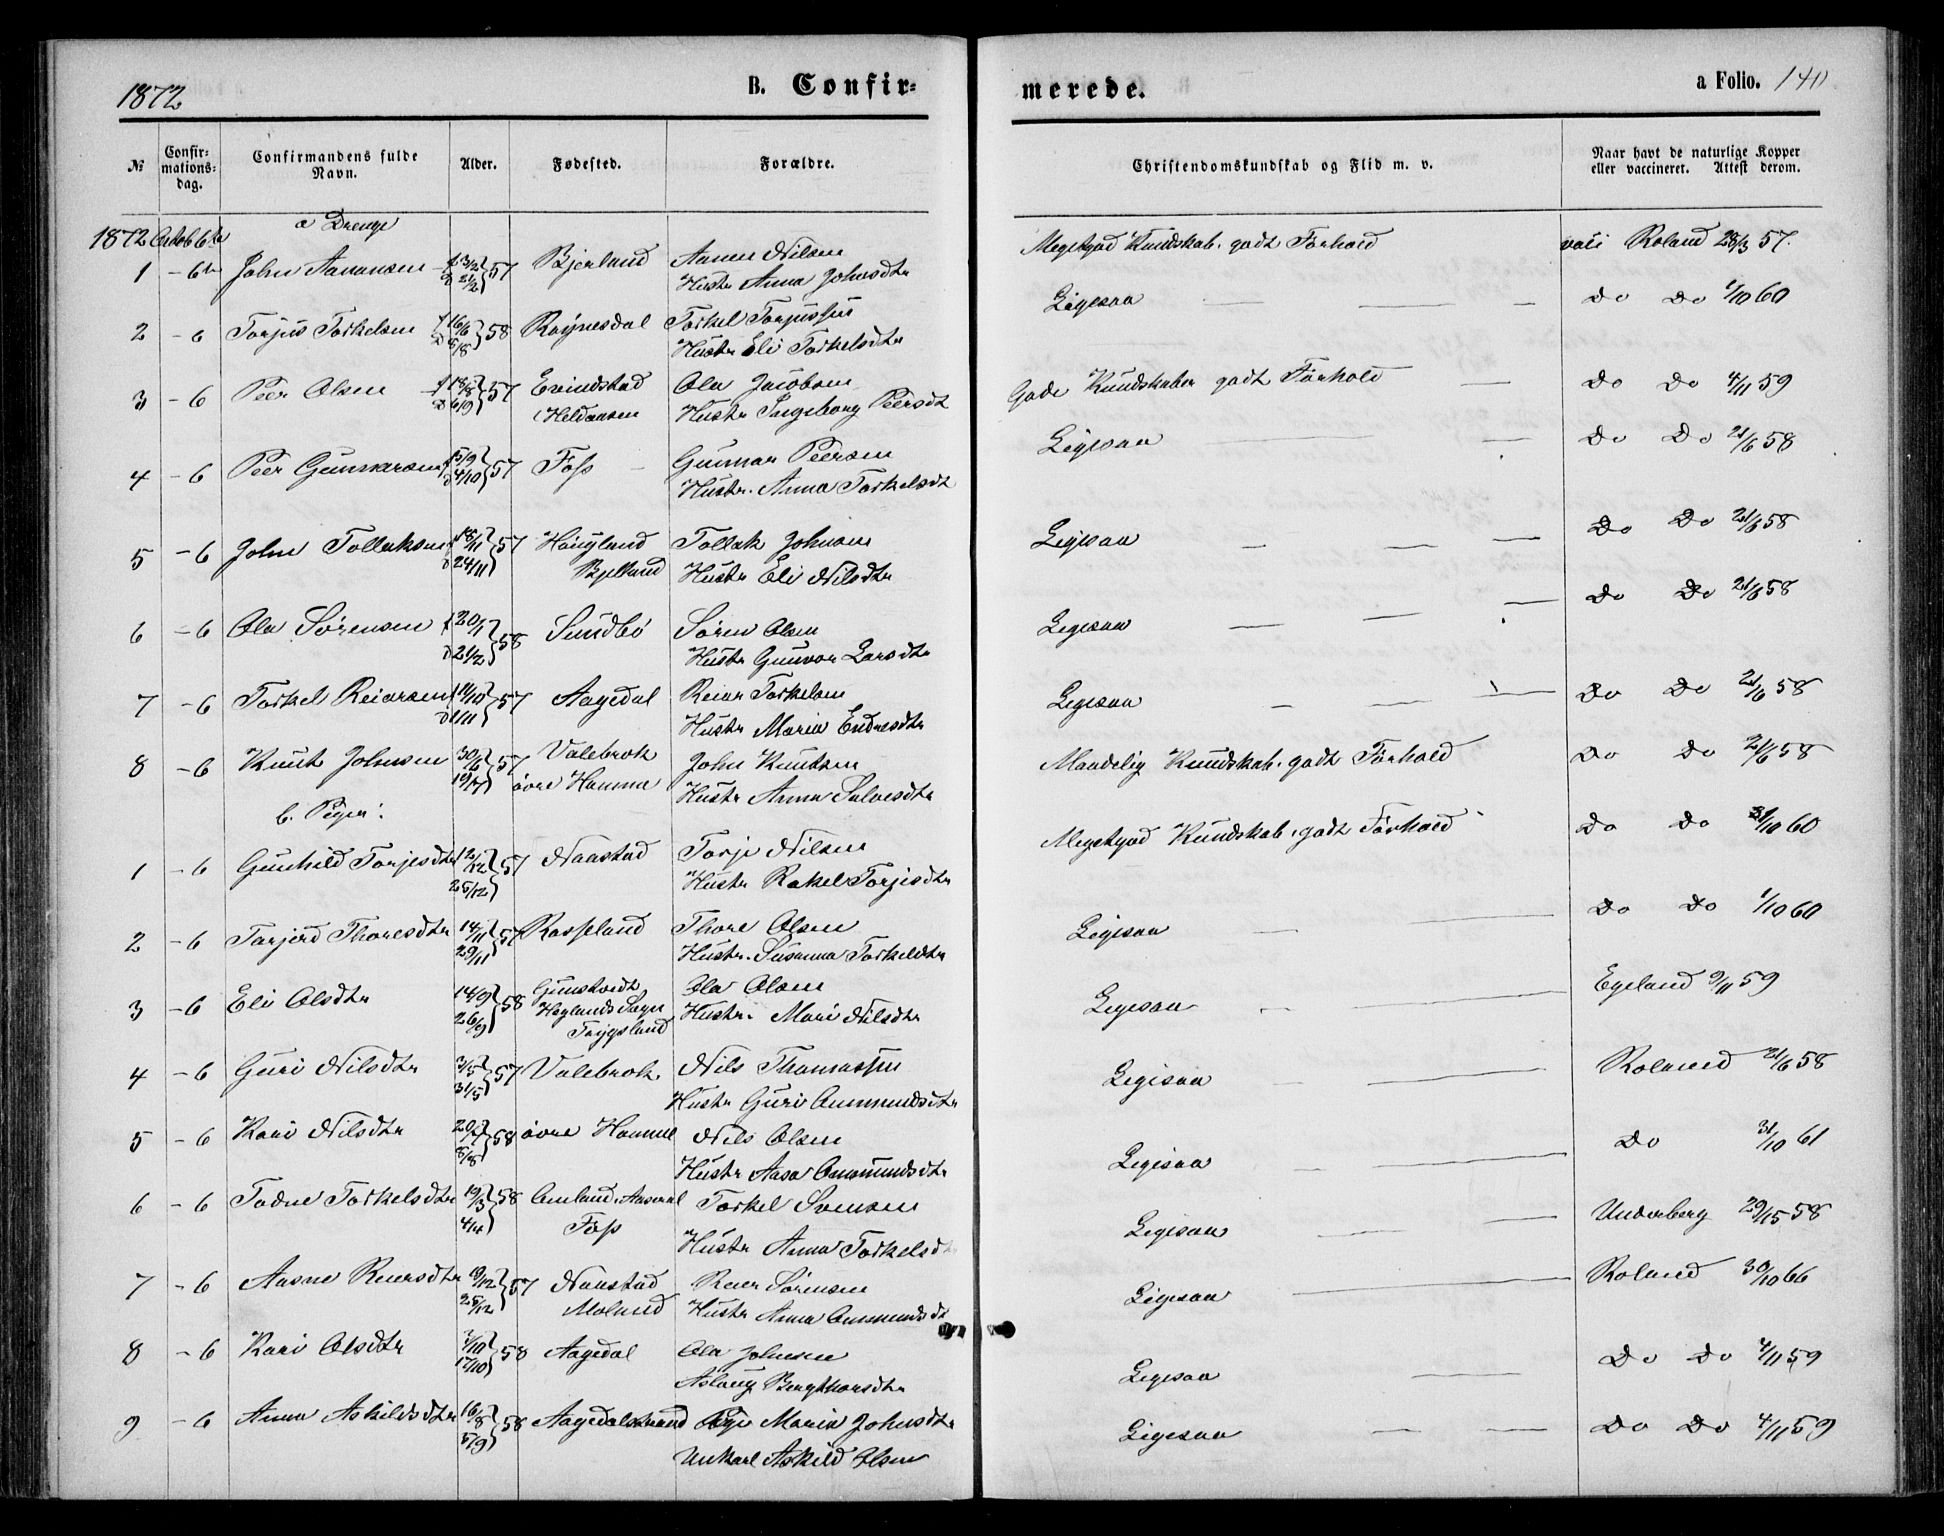 1872
B. Confir=
merede.
a Folio. 140
№ Confir=mations=dag. Confirmandens fulde Navn. Alder. Fødested. Forældre. Christendomskundskab og Flid m. v. Naar havt de naturlige Kopper eller vaccineret. Attest derom.
a Drenge
1872 Octob 6te
1 - 6te John Aanensen f 13/2 d 21/2 } 57 Bjerland Aanen Nilsen Megetgod Kundskab. godt Forhold vacc Roland 28/3 57.
Hustr Anna Johnsdtr
2 - 6 Torjus Torkelsen f 16/6 d 8/8 } 58 Røynesdal Torkel Torjussen Ligesaa Do Do 1/10 60
Hustr Eli Torkelsdtr
3 - 6 Peer Olsen f 18/8 d 6/9 } 57 Evindstad Ola Jacobsen Gode Kundskaber godt Forhold Do Do 4/11 59
Hustr Ingeborg Peersdt
4 - 6 Peer Gunnarsen f 15/9 d 4/10 } 57 Foss Gunnar Peersen Ligesaa Do Do 21/6 58
Hustr. Anna Torkelsdt
5 - 6 John Tollaksen f 18/11 d 24/11 } 57 Høugland Tollak Johnsen Ligesaa Do Do 21/6 58
Bjelland Hustr Eli Nilsdtr
6 - 6 Ola Sørensen f 20/1 d 21/2 } 58 Sundbø Søren Olsen Ligesaa Do Do 21/6 58
Hustr Gunvor Larsdtr
7 - 6 Torkel Reiersen f 14/10 d 1/11 } 57 Aagedal Reier Torkelsen Ligesaa Do Do 21/6 58
Hustr Maria Endresdtr
8 - 6 Knut Johnsen 30/6 19/7 } 57 Valebrok John Knutsen Maadelig Kundskab. godt Forhold Do Do 21/6 58
øvre Homme Hustr Anna Salvesdtr
b. Piger:
1 - 6 Gunhild Torjesdtr 12/12 25/12 } 57 Naastad Torje Nilsen Megetgod Kundskab. godt Forhold Do Do 31/10 60
Hustr Rakel Torjesdtr
2 - 6 Tarjerd Thoresdtr 14/11 29/11 } 57 Rosseland Thore Olsen Ligesaa Do Do 1/10 60
Hustr. Susanna Torkeldtr
3 - 6 Eli Olsdtr 14/9 26/9 } 58 Ola Olsen Ligesaa Egeland 9/11 59
Høglands Sogn Hustr. Mari Nilsdtr
Trygsland
4 - 6 Guri Nilsdtr 3/5 31/5 } 57 Valebrok Nils Thomassen Ligesaa Roland 21/6 58
Hustr Guri Aanmundsdtr
5 - 6 Kari Nilsdtr 20/7 8/8 } 58 øvre Homme Nils Olsen Ligesaa Do 31/10 61
Hustr Aasa Aanmundsdtr
6 - 6 Todne Torkelsdtr 19/3 4/4 } 58 Omland. Aaseral Torkel Svensen Ligesaa Underberg 29/5 58
Foss Hustr Anna Torkelsdt
7 - 6 Aasne Reiersdtr 19/12 25/12 } 57 Naastad Reier Sørensen Ligesaa Roland 30/10 66
Moland Hustr Anna Aanmundsdt
8 - 6 Kari Olsdtr 3/10 17/10 } 58 Aagedal Ola Johnsen Ligesaa Do Do 4/11 59
Aslaug Bergthorsdtr
9 - 6 Anna Askildsdtr 16/8 5/9 } 58 Aagedalstrand Pige Maria Johnsdtr Ligesaa Do Do 4/11 59
Unkarl Askild Olsen